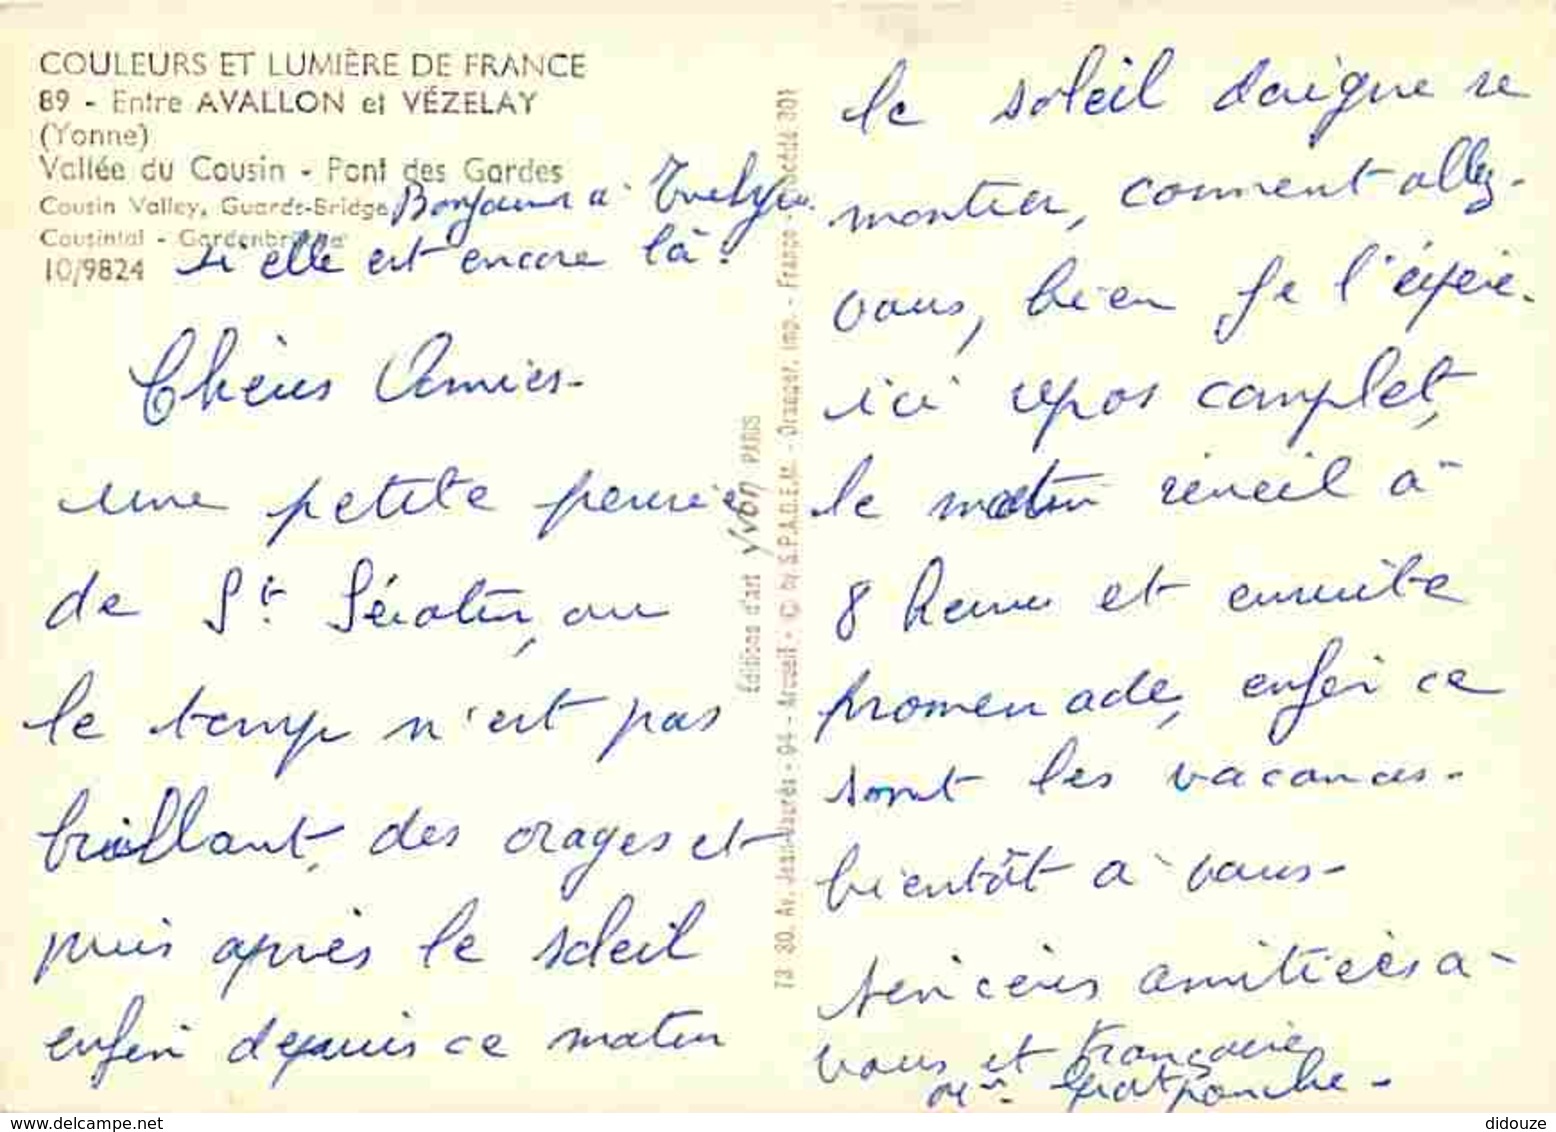 COULEURS ET LUMIÈRE DE FRANCE
89 - Entre AVALLON et VÉZELAY
(Yonne)
Vallée du Cousin - Pont des Gardes
Cousin Valley, Guards-Bridge
Cousintal - Gardenbrücke
10/9824
Bonjour à Evelyne
si elle est encore là.
Chères Amies-
une petite pensée
de St. Sérotin, ou
le temps n'est pas
brillant, des orages et
puis après le soleil
enfin depuis ce matin
Éditions d'art Yvon PARIS
73 80. Av. Jean-Jaurès - 94 - Arcueil - © by S.P.A.D.E.M. - Draeger, imp. - France - Procédé 301
le soleil daigne se
montrer, comment allez-
vous, bien je l'espère.
ici repos complet,
le matin réveil à
8 heures et ensuite
promenade, enfin ce
sont les vacances-
bientôt à vous-
sincères amitiées à
vous et Françoise